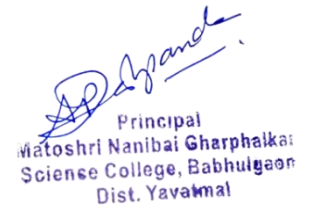 Principal
Matoshri Nanibai Gharphalkar
Science College, Babhulgaon
Dist. Yavatmal